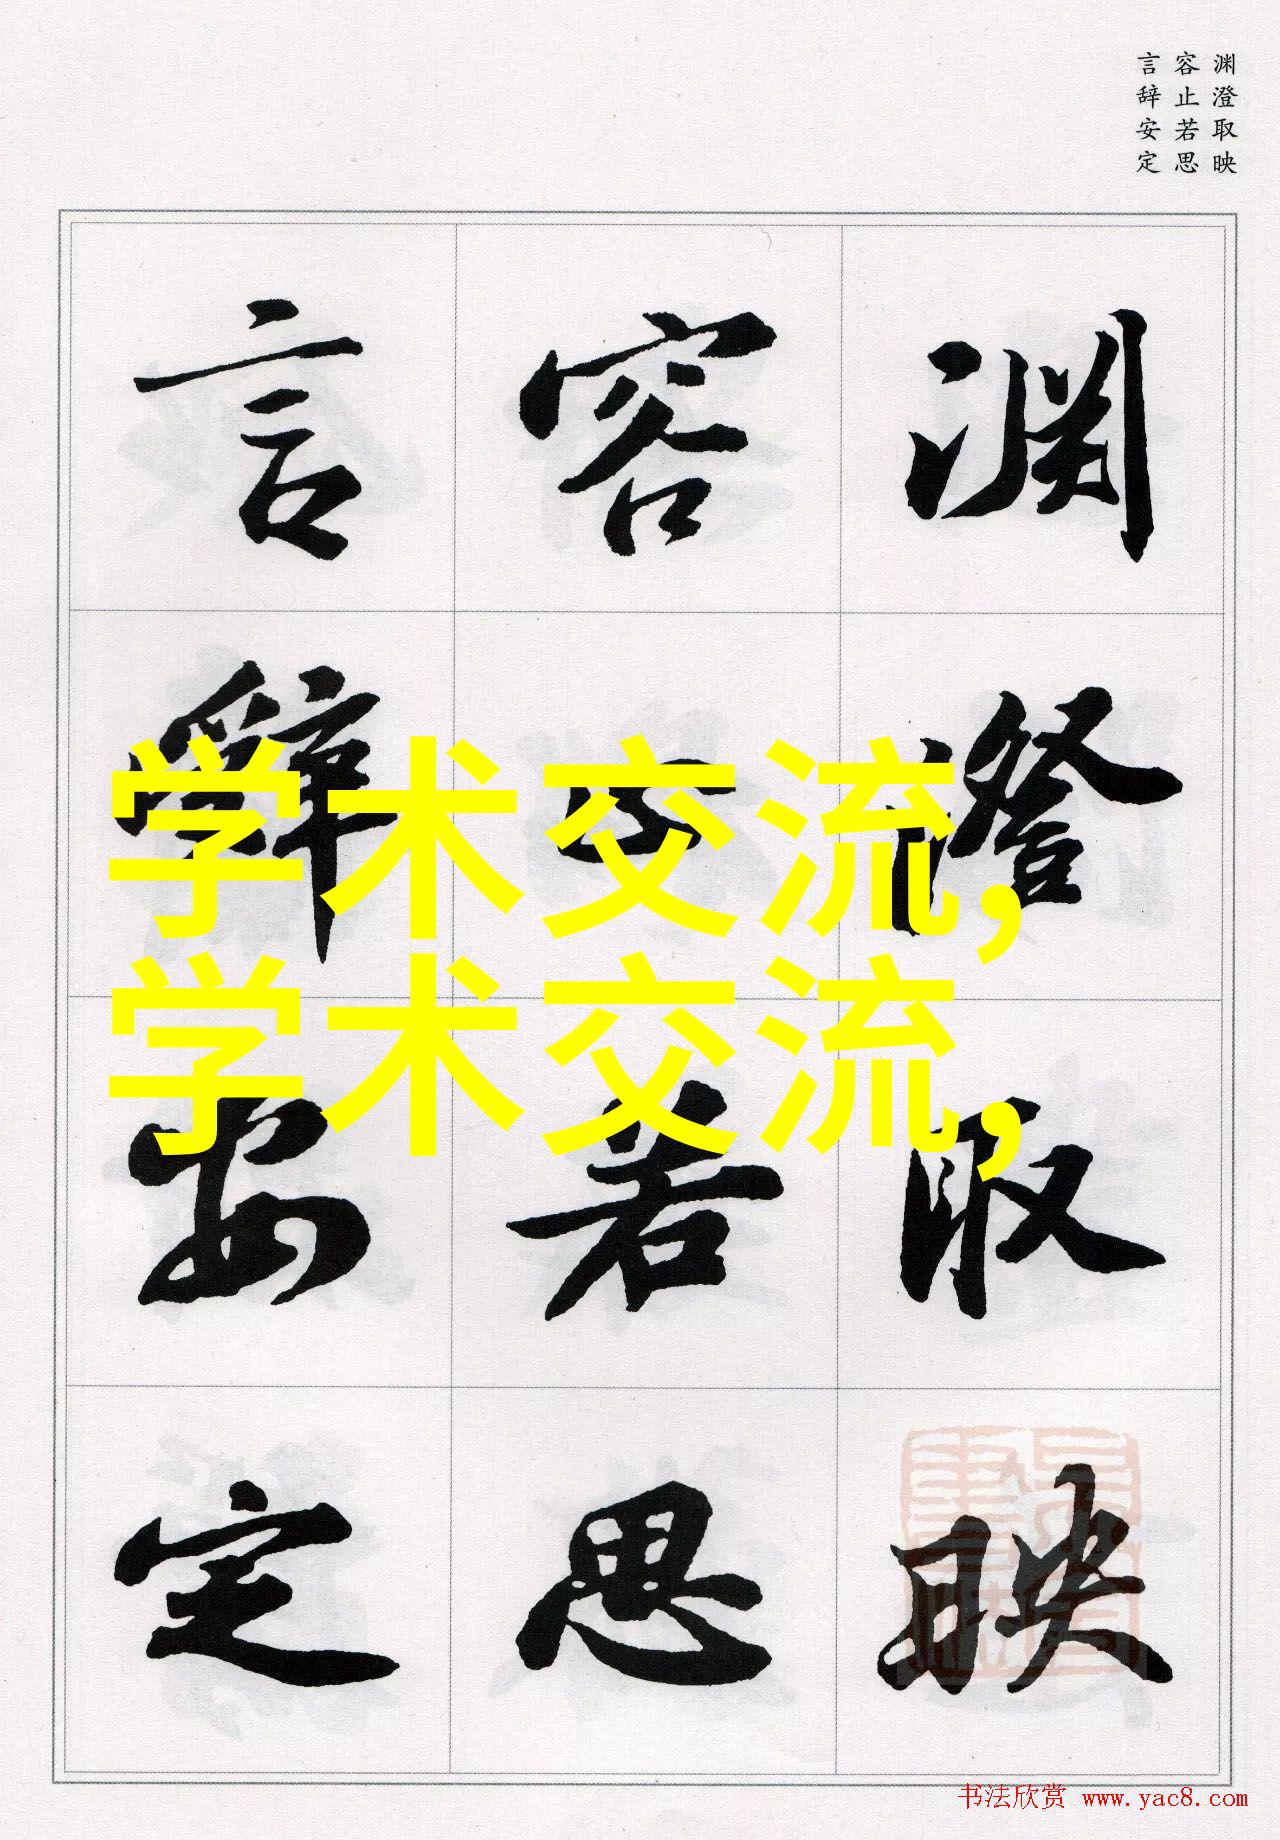 渊澄取映
容止若思
言辞安定
渊澄取映
容止若思
言辞安定
学术交流,
学术交流,
书法欣赏 www.yac8.com